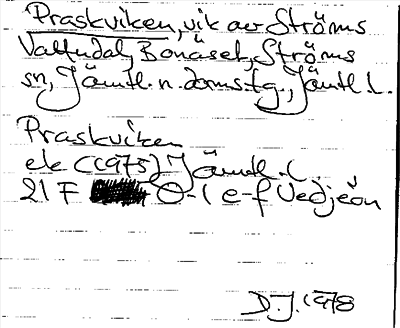 Praskviken, vik av Ströms
Vattudal, Bonäset, Ströms
sn, Jämtl. n. doms.tg., Jämtl. l.
Praskviken
ek (1975) Jämtl. l.
21 F 0-1 e-f Vedjeön
D.J. 1978